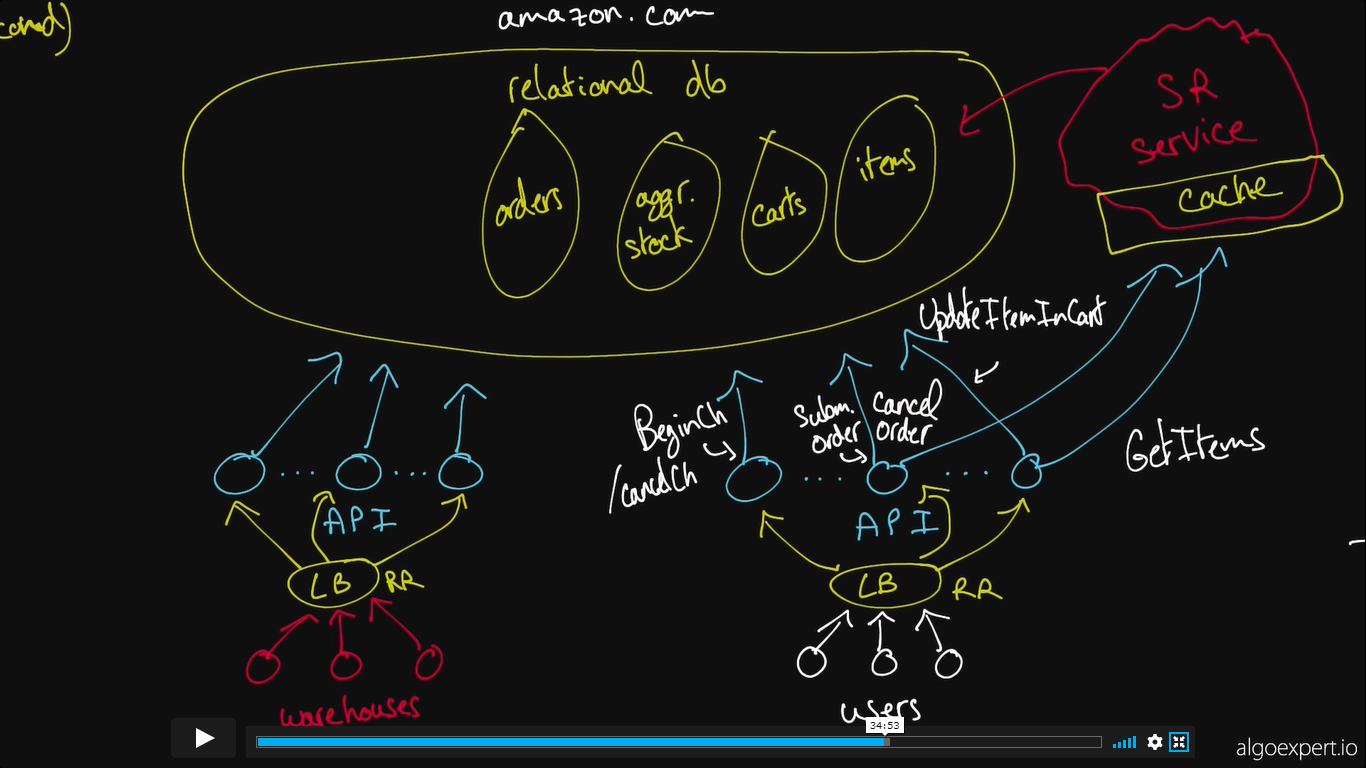 cond)
amazon.com
relational db
SR
service
cache
orders
aggr.
stock
carts
items
UpdateItemInCart
BeginCh
/cancelCh
Subm.
order
Cancel
order
GetItems
API
API
LB
RR
LB
RR
warehouses
users
34:53
algoexpert.io